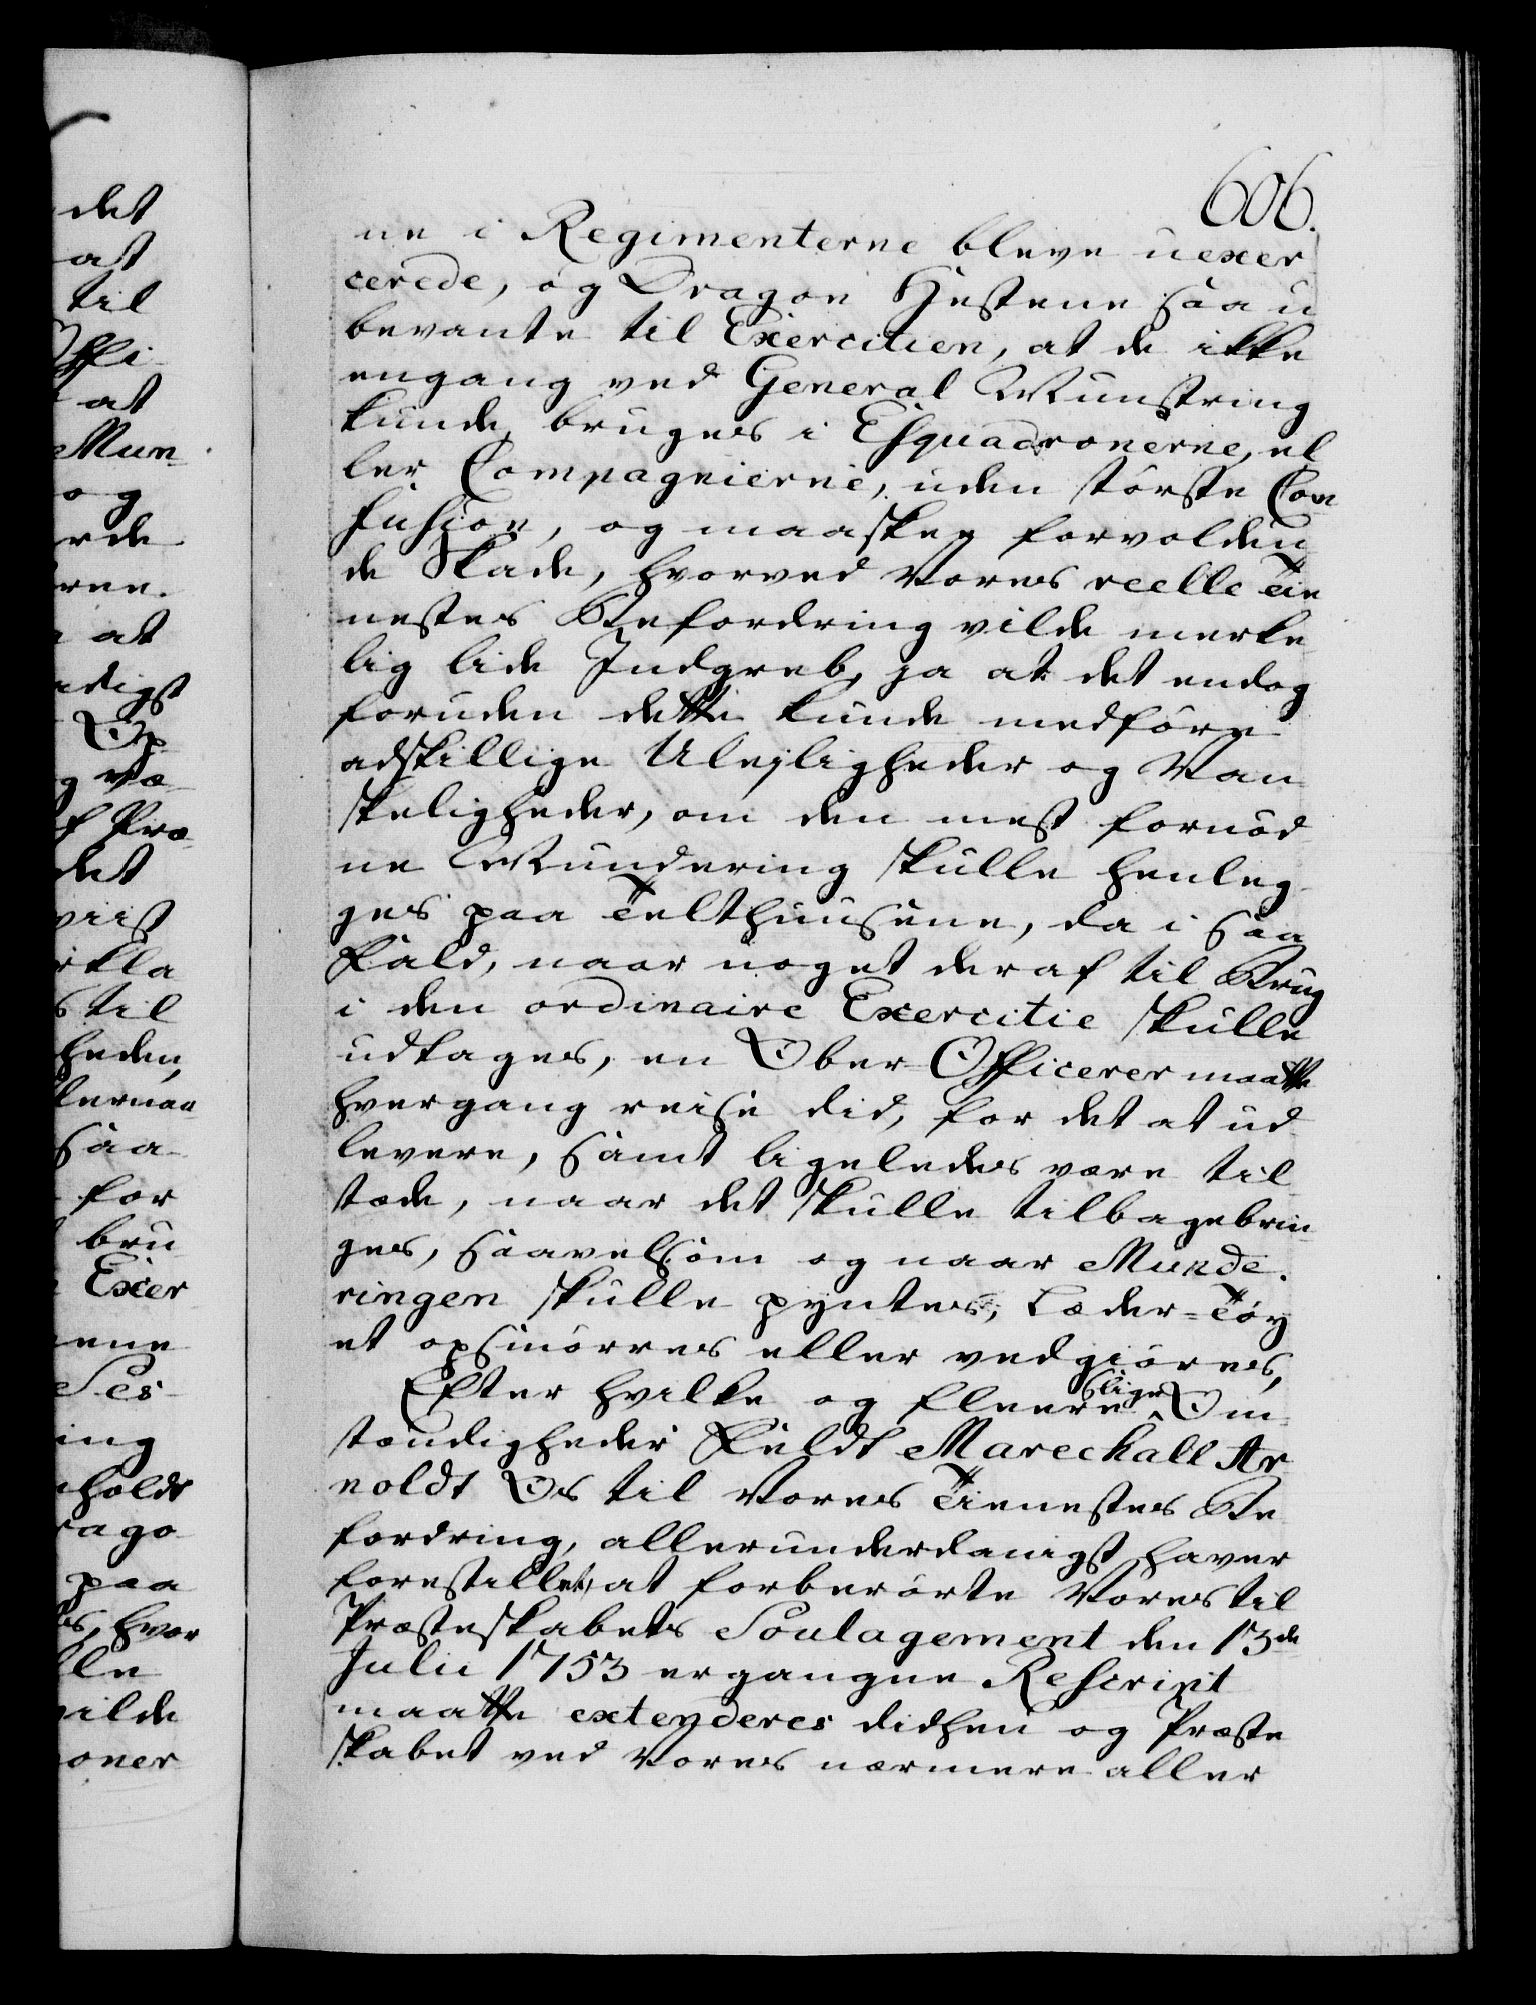 606.
ne i Regimenterne bleve uexer
cerede, og Dragon Hestene saa u
bevante til Exercitien, at de ikke
engang ved General Munstring
kunde bruges i Esquadronerne, el
ler Compagnierne, uden störste Con
fusion, og maaskee forvolden
de Skade, hvorved Vores reelle Tie
nestes Befordring vilde merke
lig lide Indgreb, ja at det endog
foruden dette kunde medföre
adskillige Ulejligheder og Van
skeligheder, om den mest fornöd
ne Mundering skulle henleg
ges paa Telthuusene, da i saa
Fald, naar noget deraf til Brug
i den ordinaire Exercitie skulle
udtages, en Ober-Officerer maatte
hvergang reise did, for det at ud
levere, samt ligeledes være til
stæde, naar det skulle tilbagebrin
ges, saavelsom og naar Munde.
ringen skulle pyntes, Læder=Töy
et opsmörres eller vedgiöres,
Efter hvilke og fleere slige Om
stændigheder Feldt Marechall Ar
noldt Os til Vores Tienestes Be
fordring, allerunderdanigst haver
forestillet, at forberörte Vores til
Præsteskabets Soulagement den 13de
Julii 1753 ergangne Rescript
maatte extenderes didhen og Præste
skabet ved Vores nærmere aller
det
at
til
Offi
at
Mun-
og
at
adigst
Op
det
til
heden,
saa
for
bru
Exer
ing
holdt
paa
hvor
vilde
oner